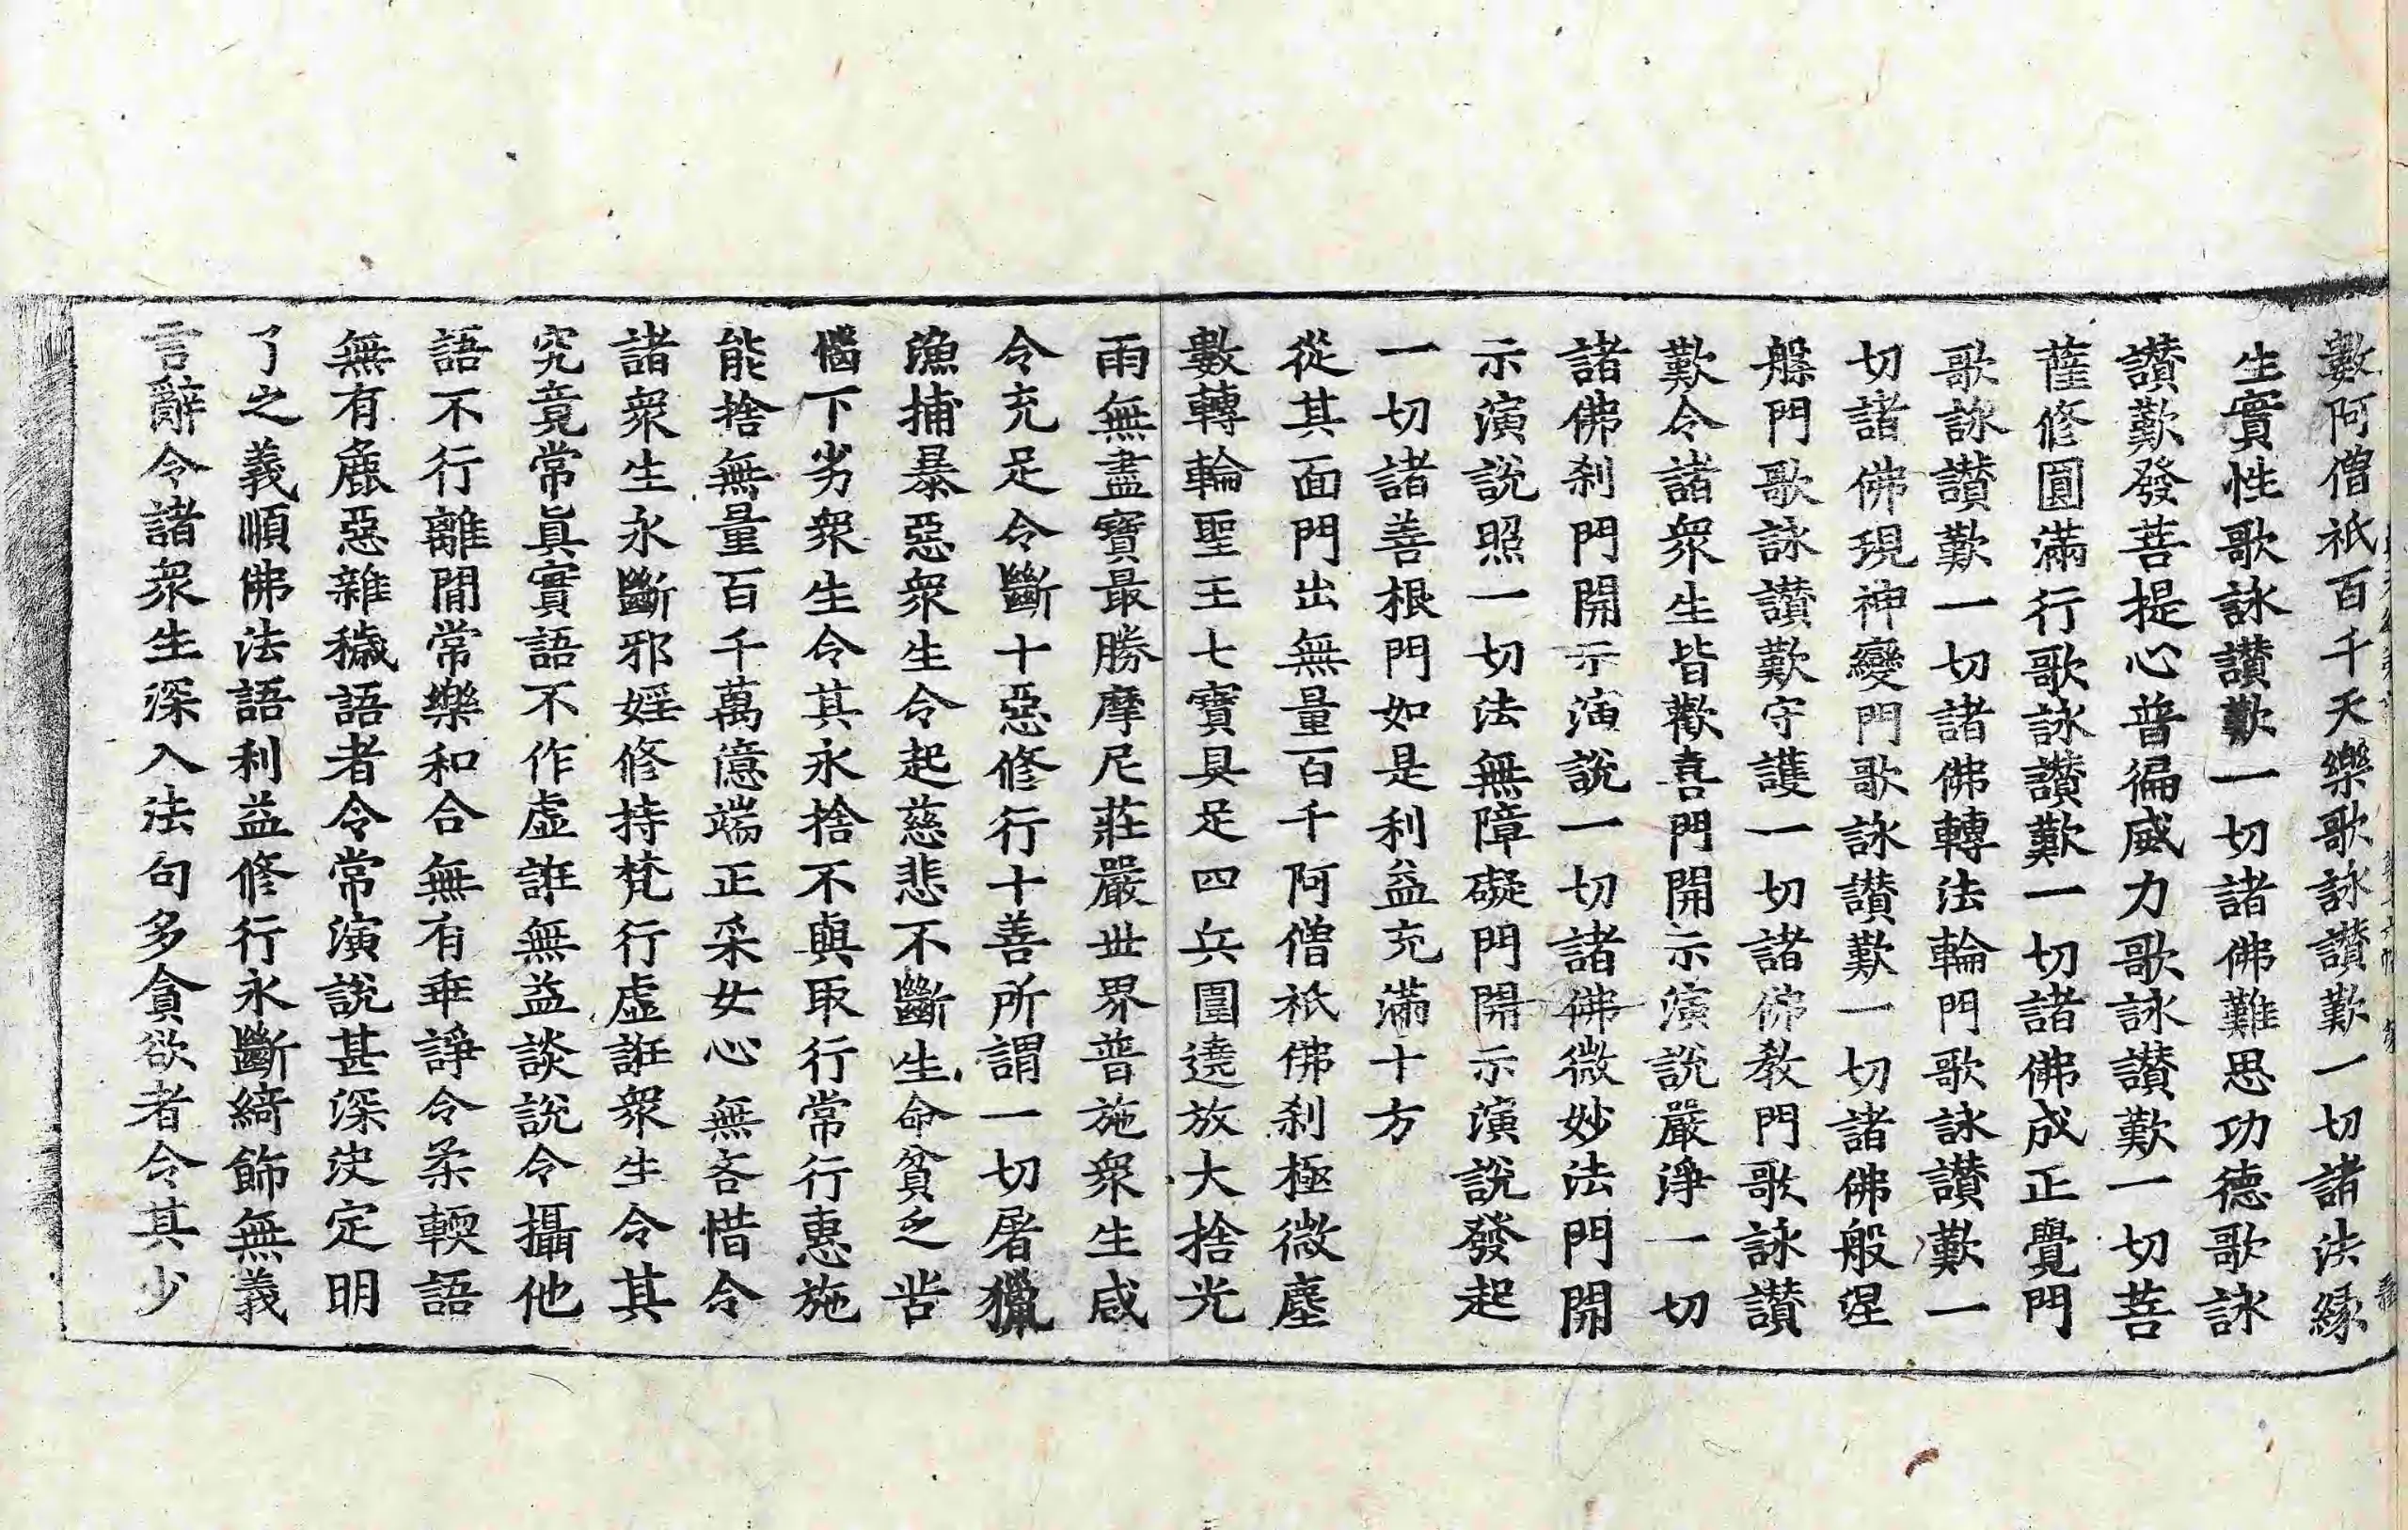 數阿僧祇百千天樂歌詠讃歎一切諸法緣
生實性歌詠讃歎一切諸佛難思功德歌詠
讃歎發菩提心普徧威力歌詠讃歎一切菩
薩修圓滿行歌詠讃歎一切諸佛成正覺門
歌詠讃歎一切諸佛轉法輪門歌詠讃歎一
切諸佛現神變門歌詠讃歎一切諸佛般涅
槃門歌詠讃歎守護一切諸佛教門歌詠讃
歎令諸衆生皆歡喜門開示演說嚴淨一切
諸佛刹門開示演說一切諸佛微妙法門開
示演說照一切法無障礙門開示演說發起
一切諸善根門如是利益充滿十方
從其面門出無量百千阿僧祇佛刹極微塵
數轉輪聖王七寶具足四兵圍遶放大捨光
雨無盡寶最勝摩尼莊嚴世界普施衆生咸
令充足令斷十惡修行十善所謂一切屠獵
漁捕暴惡衆生令起慈悲不斷生命貧乏苦
惱下劣衆生令其永捨不與取行常行惠施
能捨無量百千萬億端正采女心無吝惜令
諸衆生永斷邪婬修持梵行虛誑衆生令其
究竟常眞實語不作虛誑無益談說令攝他
語不行離間常樂和合無有乖諍令柔輭語
無有麁惡雜穢語者令常演說甚深決定明
了之義順佛法語利益修行永斷綺飾無義
言辭令諸衆生深入法句多貪欲者令其少